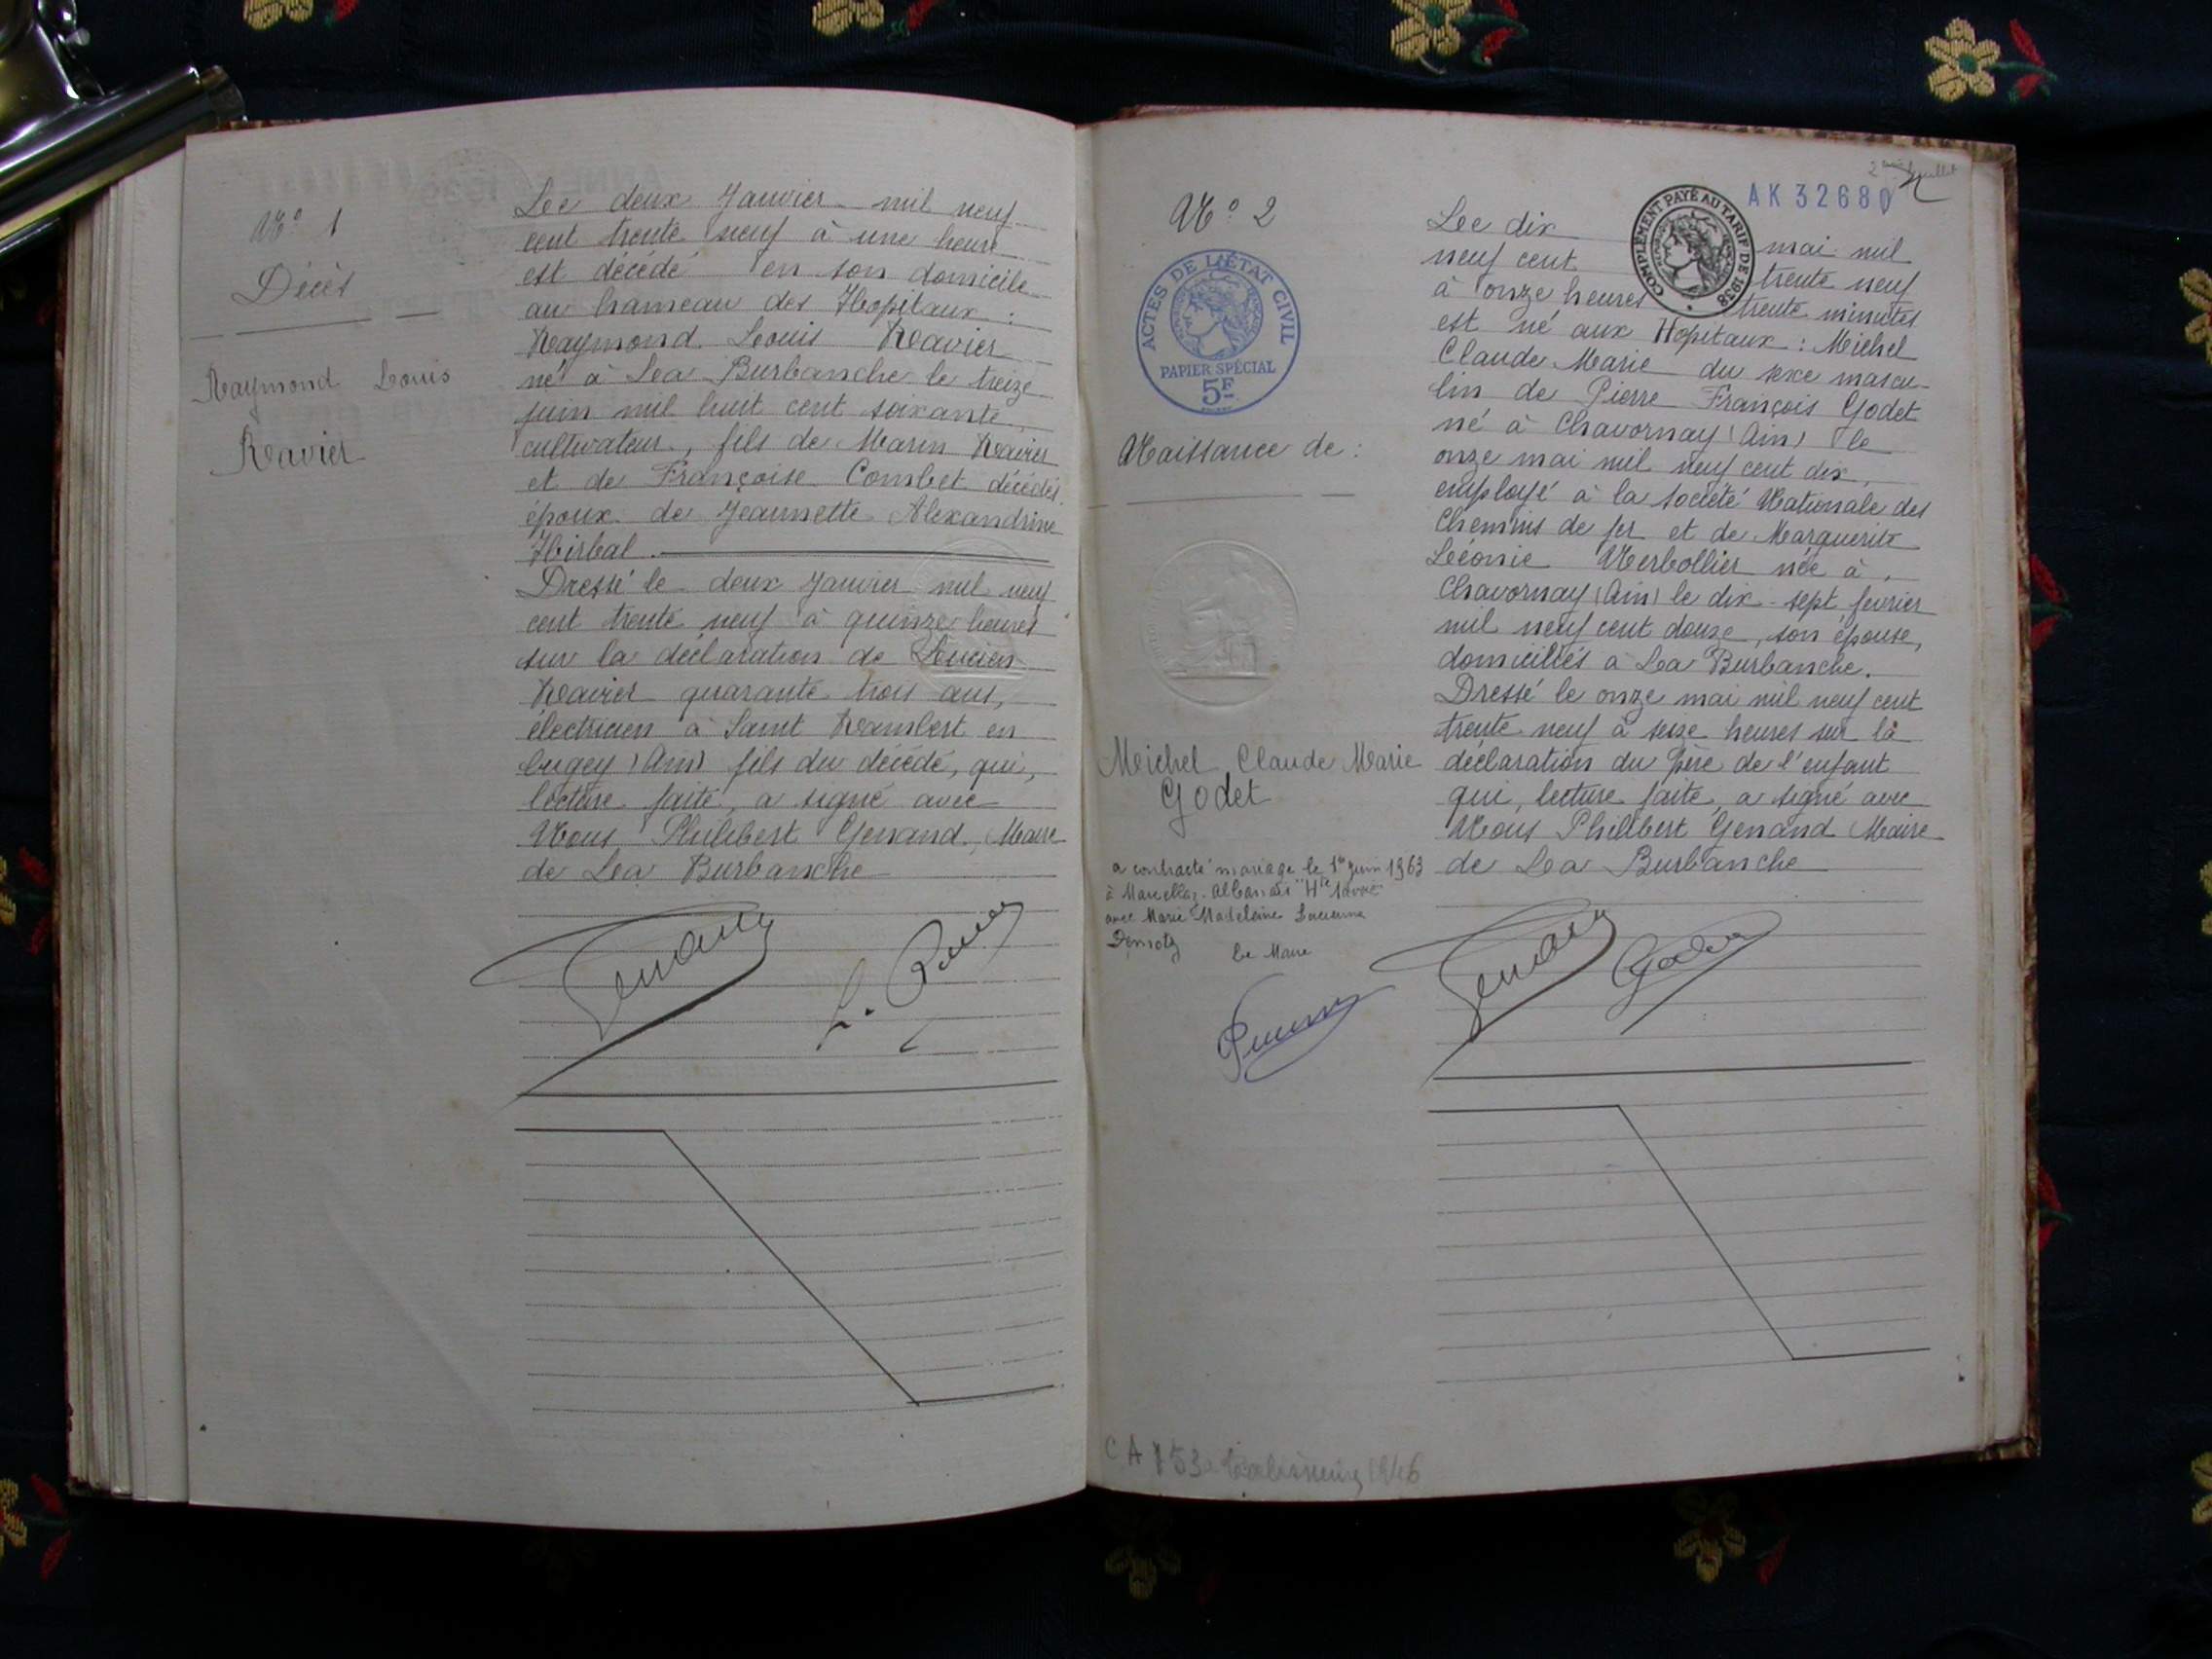 N° 1
Décès
Raymond Louis
Ravier
Le deux Janvier mil neuf
cent trente neuf à une heure
est décédé en son domicile
au hameau des Hopitaux :
Raymond Louis Ravier
né à La Burbanche le treize
juin mil huit cent soixante,
cultivateur, fils de Marin Ravier
et de Françoise Combet décédés,
époux de Jeannette Alexandrine
Hirbal.
Dressé le deux Janvier mil neuf
cent trente neuf à quinze heures
sur la déclaration de Lucien
Ravier quarante trois ans,
électricien à Saint Rambert en
bugey (Ain) fils du décédé, qui,
lecture faite, a signé avec
Nous Philibert Genand, Maire
de La Burbanche
Genand
L. Ravier
2ème feuillet
AK 32680
N° 2
ACTES DE L'ÉTAT CIVIL
PAPIER SPÉCIAL
5F
COMPLÉMENT PAYÉ AU TARIF DE 1938
Naissance de :
Michel Claude Marie
Godet
a contracté mariage le 1er Juin 1963
à Marcellaz-Albanais "Hte Savoie
avec Marie Madeleine Lucienne
Demotz
Le Maire
Le dix mai mil
neuf cent trente neuf
à onze heures trente minutes
est né aux Hopitaux : Michel
Claude Marie du sexe mascu-
lin de Pierre François Godet
né à Chavornay (Ain) le
onze mai mil neuf cent dix,
employé à la société Nationale des
Chemins de fer et de Marguerite
Léonie Nerbollier née à
Chavornay (Ain) le dix-sept février
mil neuf cent douze, son épouse,
domiciliés à La Burbanche.
Dressé le onze mai mil neuf cent
trente neuf à seize heures sur la
déclaration du père de l'enfant
qui, lecture faite, a signé avec
Nous Philibert Genand Maire
de La Burbanche
Genand
Godet